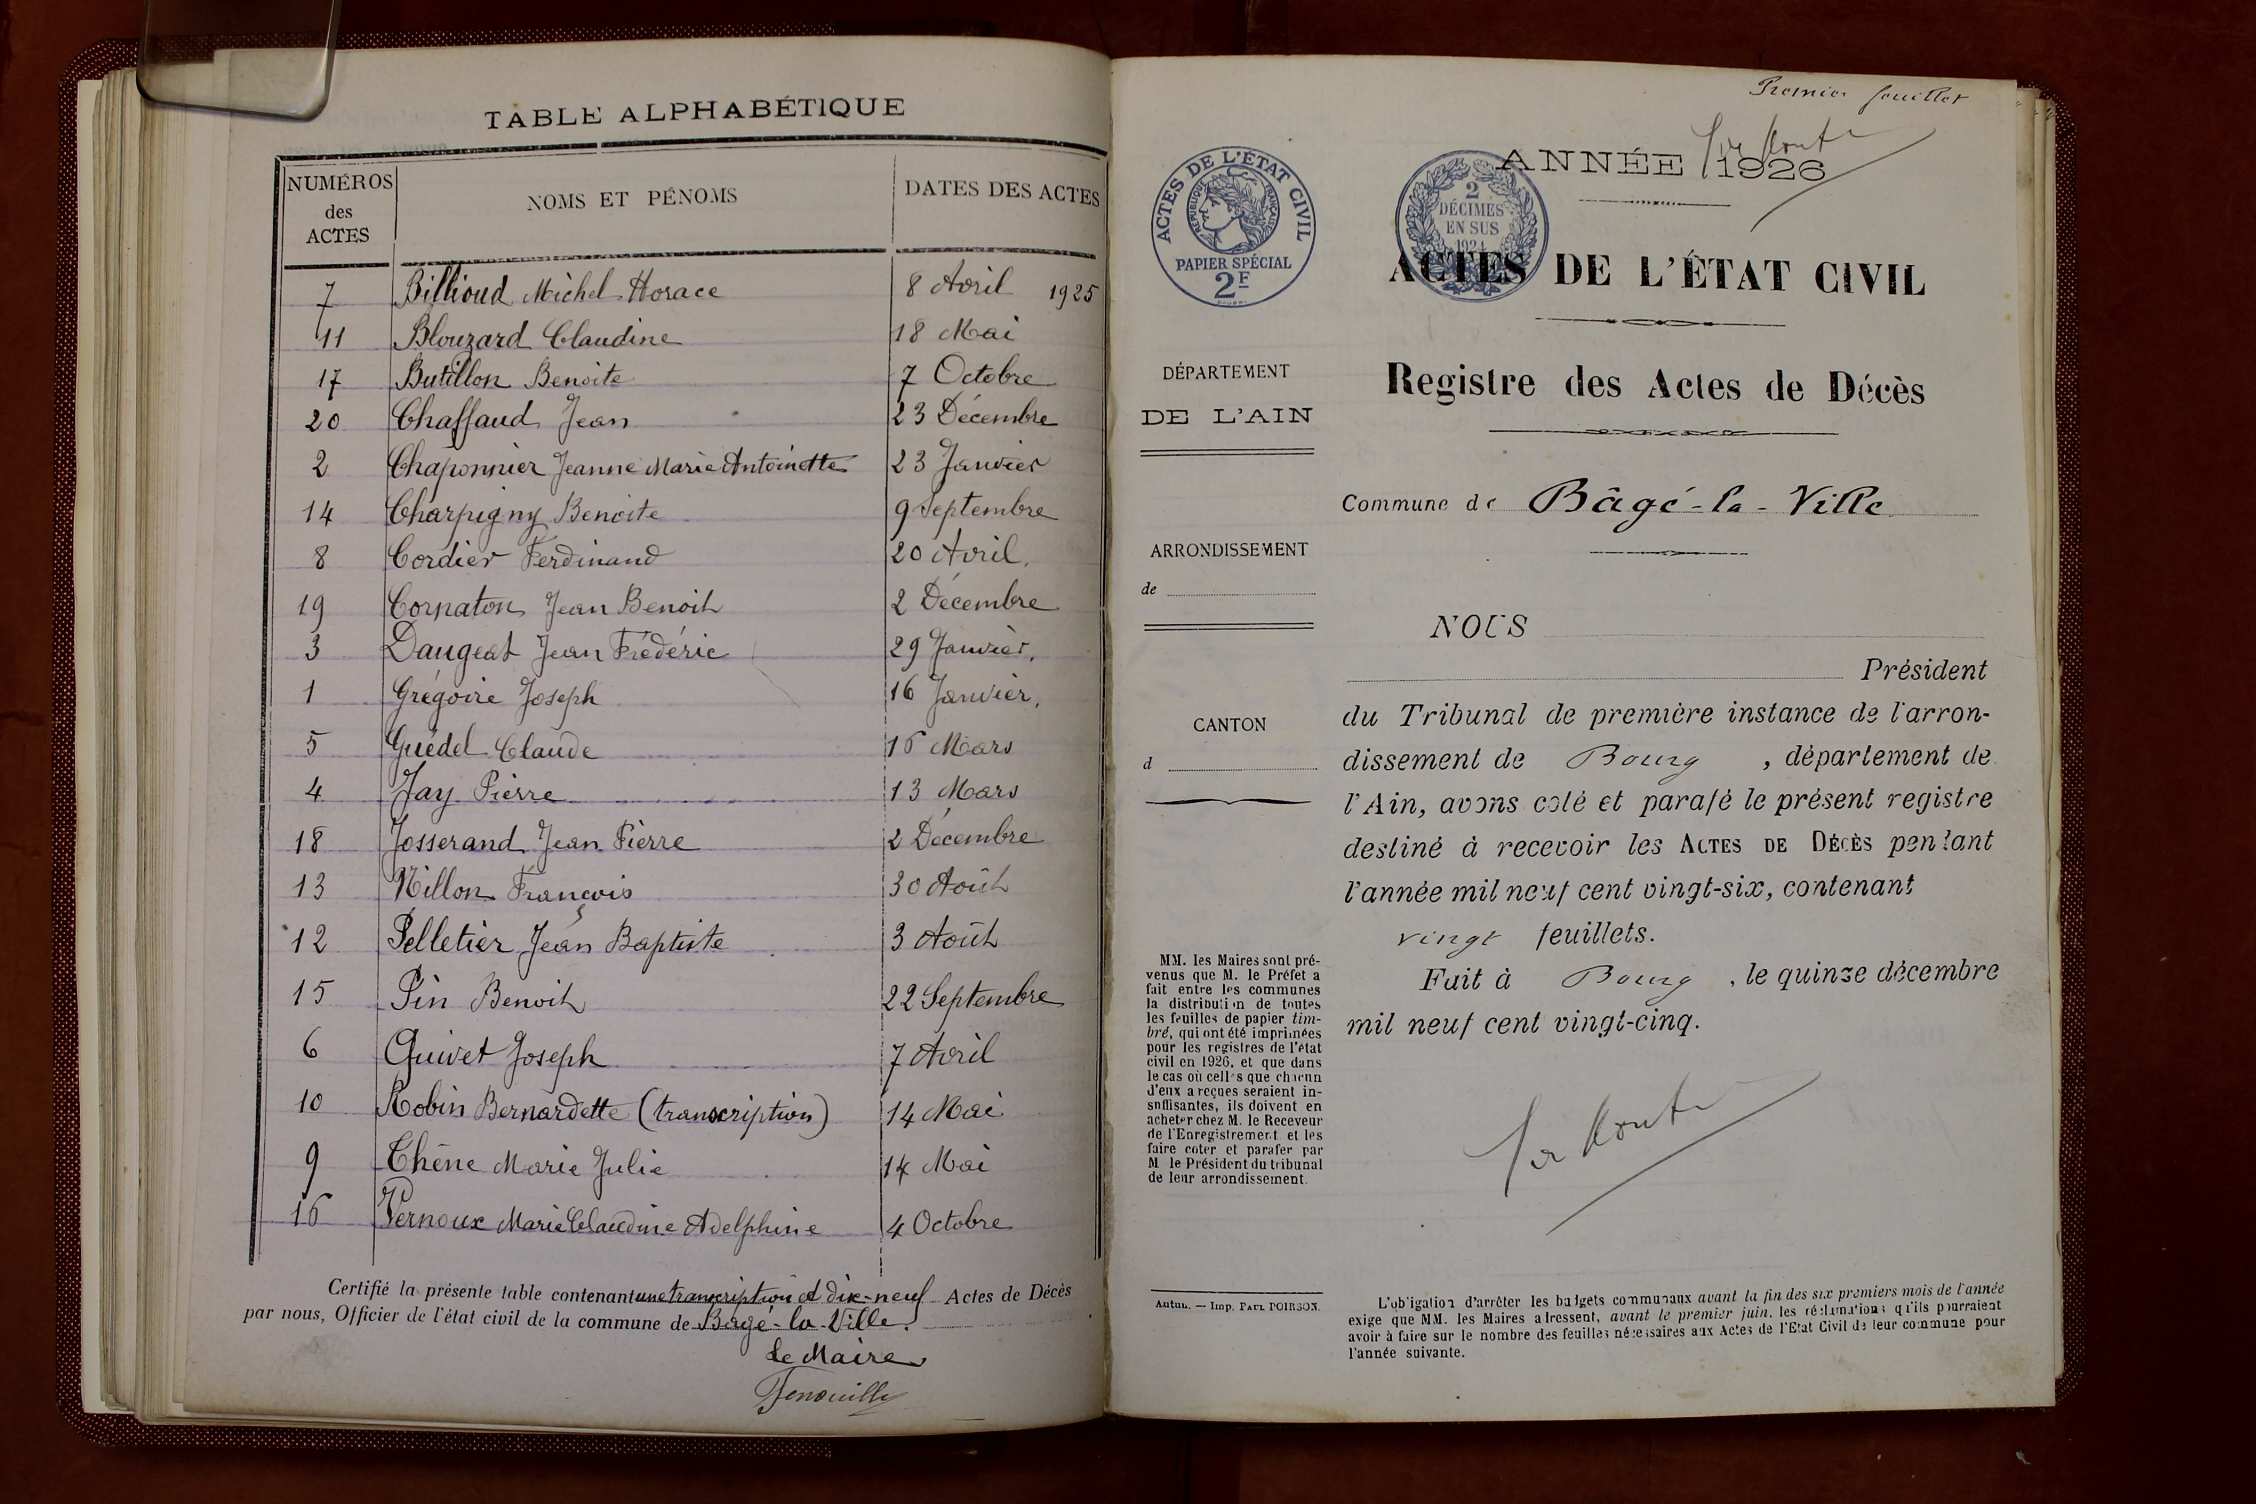 TABLE ALPHABÉTIQUE
NUMÉROS des ACTES NOMS ET PÉNOMS DATES DES ACTES
7 Billioud Michel Horace 8 Avril 1925
11 Blouzard Claudine 18 Mai
17 Butillon Benoite 7 Octobre
20 Chaffaud Jean 23 Décembre
2 Chaponnier Jeanne Marie Antoinette 23 Janvier
14 Charpigny Benoite 9 Septembre
8 Cordier Ferdinand 20 Avril.
19 Cornaton Jean Benoit 2 Décembre
3 Daugeat Jean Frédéric 29 Janvier.
1 Grégoire Joseph 16 Janvier.
5 Guédel Claude 16 Mars
4 Jay Pierre 13 Mars
18 Josserand Jean Pierre 2 Décembre
13 Nillon François 30 Août
12 Pelletier Jean Baptiste 3 Août
15 Pin Benoit 22 Septembre
6 Quivet Joseph 7 Avril
10 Robin Bernardette (transcription) 14 Mai
9 Thène Marie Julie 14 Mai
16 Vernoux Marie Claudine Adelphine 4 Octobre
Certifié la présente table contenant une transcription et dix-neuf Actes de Décès
par nous, Officier de l'état civil de la commune de Bâgé-la-Ville.
Le Maire
Premier feuillet
ANNÉE 1926
ACTES DE L'ÉTAT CIVIL
RÉPUBLIQUE FRANÇAISE
PAPIER SPÉCIAL
2F
2
DÉCIMES
EN SUS
1924
ACTES DE L'ÉTAT CIVIL
Registre des Actes de Décès
Commune de Bâgé-la-Ville
DÉPARTEMENT
DE L'AIN
ARRONDISSEMENT
de
CANTON
d
MM. les Maires sont pré-
venus que M. le Préfet a
fait entre les communes
la distribution de toutes
les feuilles de papier tim-
bré, qui ont été imprimées
pour les registres de l'état
civil en 1926, et que dans
le cas où celles que chacun
d'eux a reçues seraient in-
suffisantes, ils doivent en
acheter chez M. le Receveur
de l'Enregistrement et les
faire coter et parafer par
M le Président du tribunal
de leur arrondissement.
Autun. — Imp. Paul POIRSON.
NOUS
Président
du Tribunal de première instance de l'arron-
dissement de Bourg, département de
l'Ain, avons coté et parafé le présent registre
destiné à recevoir les ACTES DE DÉCÈS pendant
l'année mil neuf cent vingt-six, contenant
vingt feuillets.
Fait à Bourg, le quinze décembre
mil neuf cent vingt-cinq.
L'obligation d'arrêter les budgets communaux avant la fin des six premiers mois de l'année
exige que MM. les Maires adressent, avant le premier juin, les réclamations qu'ils pourraient
avoir à faire sur le nombre des feuilles nécessaires aux Actes de l'Etat Civil de leur commune pour
l'année suivante.